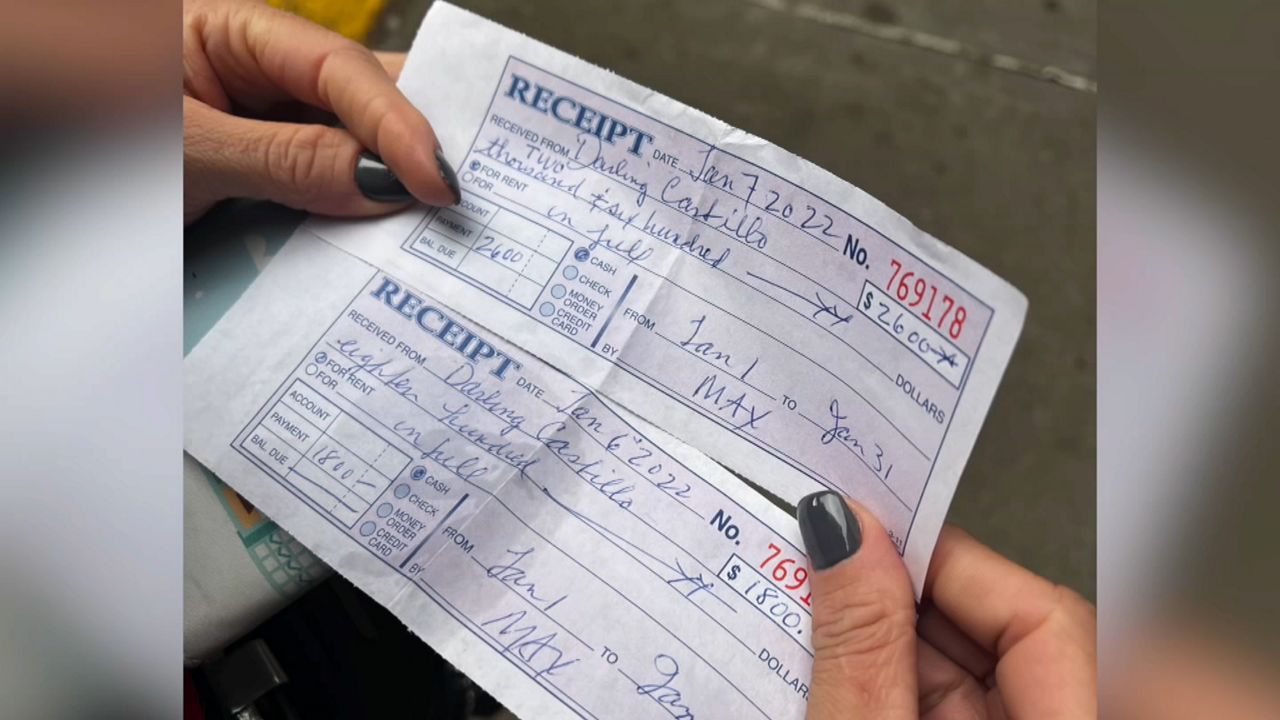 RECEIPT DATE Jan 7 2022 No. 769178
RECEIVED FROM Darling Castillo $2600
Two thousand & six hundred DOLLARS
FOR RENT
FOR in full
ACCOUNT
PAYMENT 2600
BAL. DUE
CASH
CHECK
MONEY ORDER
CREDIT CARD
FROM Jan 1 TO Jan 31
BY MAX
RECEIPT DATE Jan 6 2022 No. 769
RECEIVED FROM Darling Castillo $1800.
eighteen hundred DOLLAR
FOR RENT
FOR in full
ACCOUNT
PAYMENT 1800
BAL. DUE
CASH
CHECK
MONEY ORDER
CREDIT CARD
FROM Jan 1 TO Jan
BY MAX